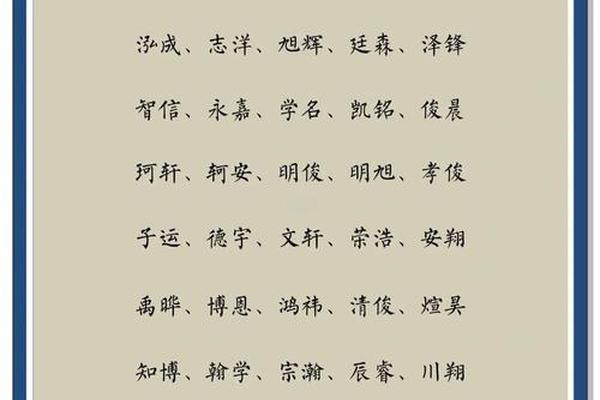 泓成、志洋、旭辉、廷森、泽锋
智信、永嘉、学名、凯铭、俊晨
珂轩、轲安、明俊、明旭、孝俊
子运、德宇、文轩、荣浩、安翔
禹晔、博恩、鸿祎、清俊、煊昊
知博、翰学、宗瀚、辰睿、川翔